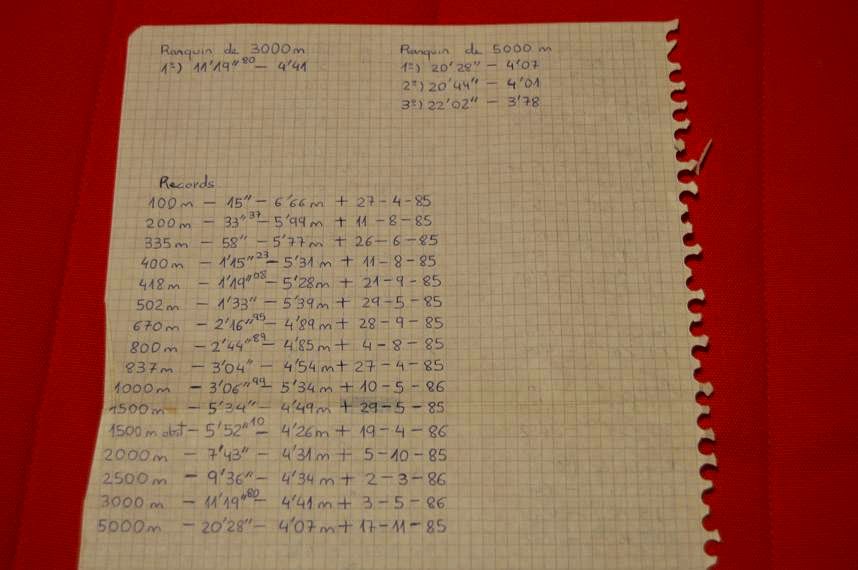 Ranquin de 3000m
1º) 11'19"80 - 4'41
Ranquin de 5000 m
1º) 20'28" - 4'07
2º) 20'44" - 4'01
3º) 22'02" - 3'78
Records
100m - 15" - 6'66m + 27-4-85
200m - 33"37 - 5'99m + 11-8-85
335m - 58" - 5'77m + 26-6-85
400m - 1'15"23 - 5'31m + 11-8-85
418m - 1'19"08 - 5'28m + 21-9-85
502m - 1'33" - 5'39m + 29-5-85
670m - 2'16"95 - 4'89m + 28-9-85
800m - 2'44"89 - 4'85m + 4-8-85
837m - 3'04" - 4'54m + 27-4-85
1000m - 3'06"99 - 5'34m + 10-5-86
1500m - 5'34" - 4'49m + 29-5-85
1500m obst - 5'52"10 - 4'26m + 19-4-86
2000m - 7'43" - 4'31m + 5-10-85
2500m - 9'36" - 4'34m + 2-3-86
3000m - 11'19"80 - 4'41m + 3-5-86
5000m - 20'28" - 4'07m + 17-11-85